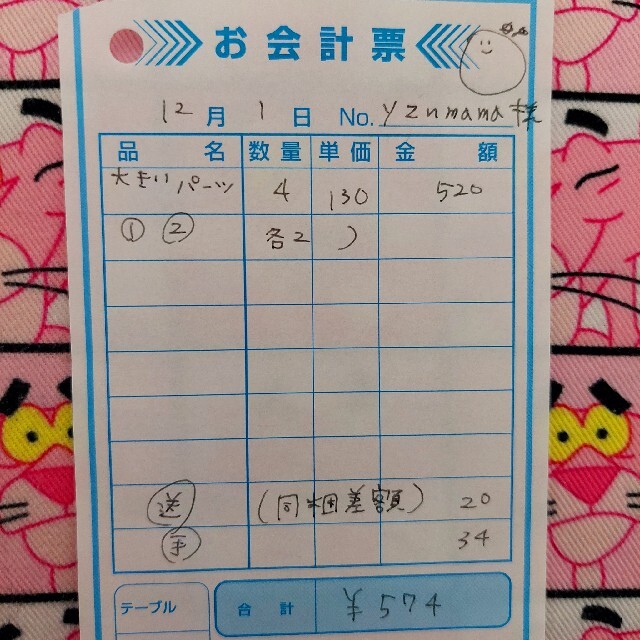 お会計票
12月 1日 No. yzumama様
品名 数量 単価 金額
大きいパーツ 4 130 520
① ② 各2 )
送 (同梱差額) 20
手 34
テーブル 合計 ¥574